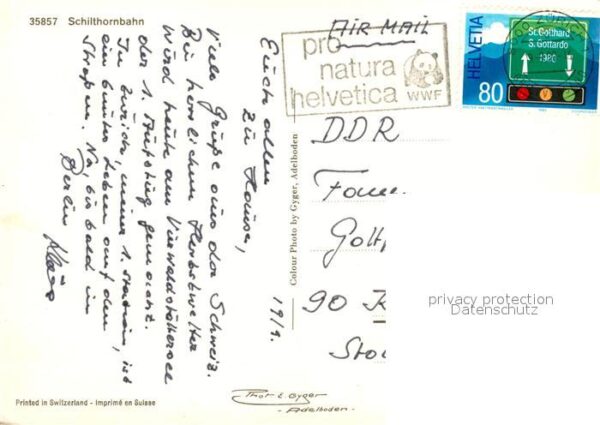 35857 Schilthornbahn
AIR MAIL
pro
natura
helvetica WWF
HELVETIA
St. Gotthard
S. Gottardo
1980
80
Euch allen
zu Hause,
viele Grüße aus der Schweiz.
Bei herrlichem Herbstwetter
wird heute am Vierwaldstättersee
der 1. Aufstieg gemacht.
In Zürich, meiner 1. Station, ist
ein buntes Leben auf den
Straßen. Na, bis bald in
Berlin
Klaus
19/9.
Colour Photo by Gyger, Adelboden
DDR
Fam
90 K
privacy protection
Datenschutz
Printed in Switzerland - Imprimé en Suisse
Thor E Gyger
- Adelboden -